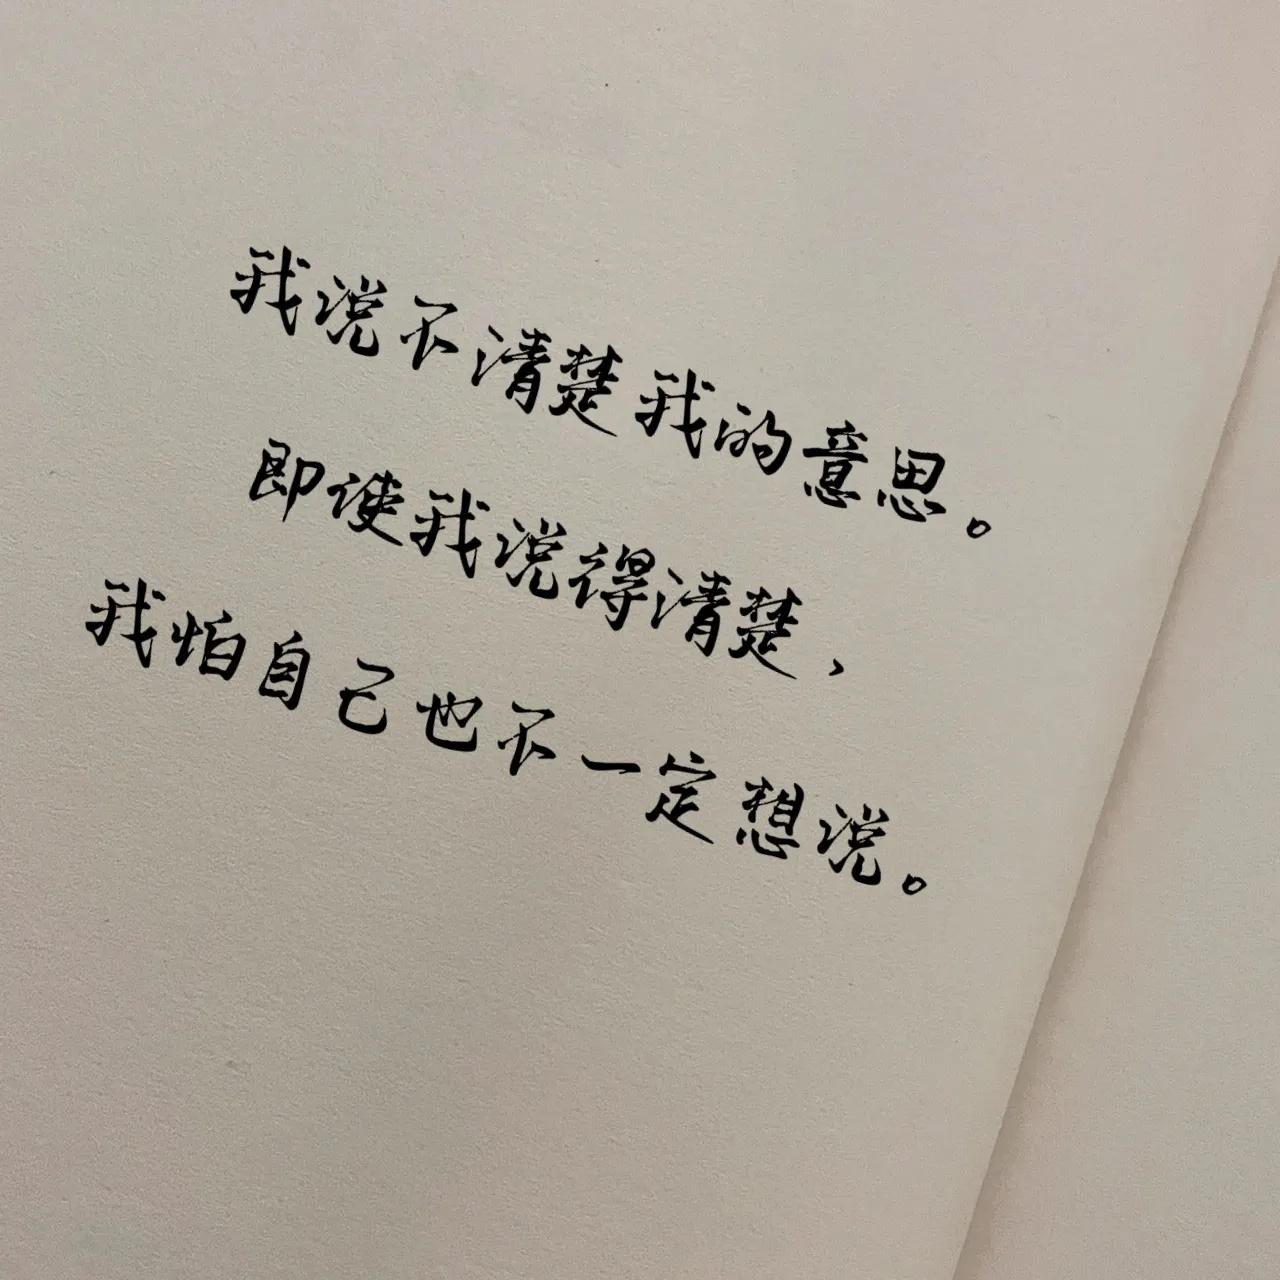 我说不清楚我的意思。
即使我说得清楚，
我怕自己也不一定想说。